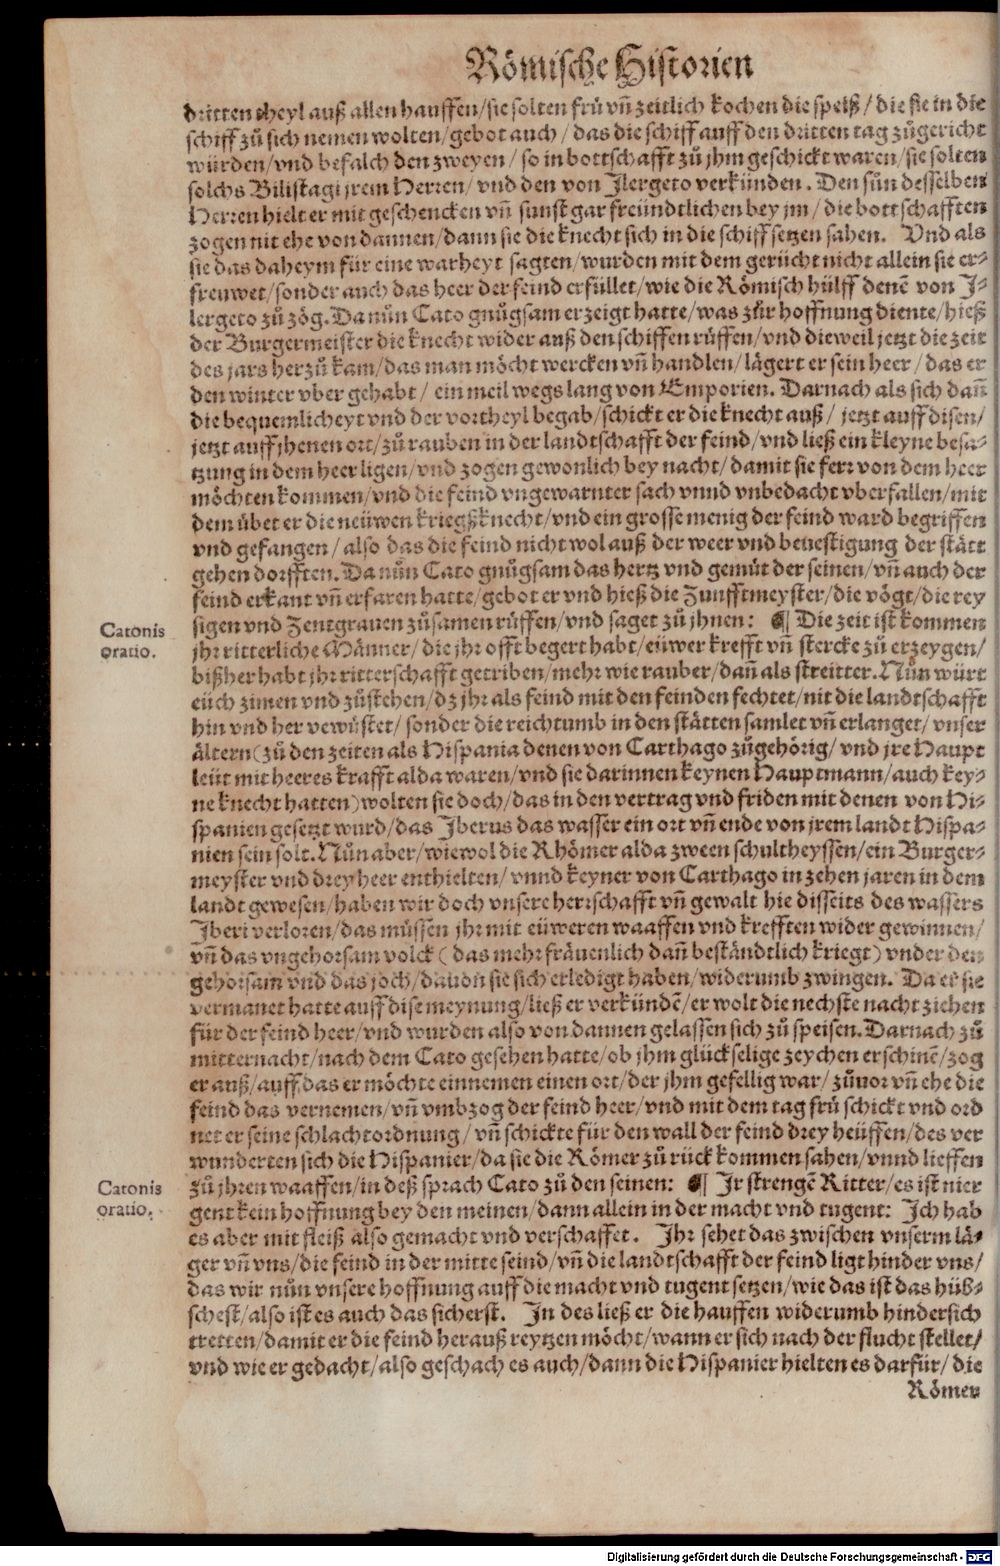 Römische Historien
dritten theyl auß allen hauffen/sie solten frů vñ zeitlich kochen die speiß/die sie in die
schiff zů sich nemen wolten/gebot auch/das die schiff auff den dritten tag zůgericht
würden/vnd befalch den zweyen/so in bottschafft zů jhm geschickt waren/sie solten
solchs Bilistagi jrem Herren/vnd den von Jlergeto verkünden. Den sůn desselben
Herren hielt er mit geschencken vñ sunst gar freündtlichen bey jm/die bottschafften
zogen nit ehe von dannen/dann sie die knecht sich in die schiff setzen sahen. Vnd als
sie das daheym für eine warheyt sagten/wurden mit dem gerücht nicht allein sie er-
frewet/sonder auch das heer der feind erfüllet/wie die Römisch hülff denẽ von J-
lergeto zů zög. Da nůn Cato gnůgsam erzeigt hatte/was zůr hoffnung diente/hieß
der Burgermeister die knecht wider auß den schiffen růffen/vnd dieweil jetzt die zeit
des jars herzů kam/das man möcht wercken vñ handlen/lägert er sein heer/das er
den winter vber gehabt/ein meil wegs lang von Emporien. Darnach als sich dañ
die bequemlicheyt vnd der vortheyl begab/schickt er die knecht auß/jetzt auff disen/
jetzt auff jhenen ort/zů rauben in der landtschafft der feind/vnd ließ ein kleyne besa-
tzung in dem heer ligen/vnd zogen gewonlich bey nacht/damit sie ferr von dem heer
möchten kommen/vnd die feind vngewarnter sach vnnd vnbedacht vberfallen/mit
dem übet er die neüwen kriegßknecht/vnd ein grosse menig der feind ward begriffen
vnd gefangen/also das die feind nicht wol auß der weer vnd beuestigung der stätt
gehen dorfften. Da nůn Cato gnůgsam das hertz vnd gemůt der seinen/vñ auch der
feind erkant vñ erfaren hatte/gebot er vnd hieß die Zunfftmeyster/die vögt/die rey
sigen vnd Zentgrauen zůsamen růffen/vnd saget zů jhnen: ¶ Die zeit ist kommen
Catonis
oratio.
jhr ritterliche Männer/die jhr offt begert habt/eüwer krefft vñ stercke zů erzeygen/
bißher habt jhr ritterschafft getriben/mehr wie rauber/dañ als streitter. Nůn würt
eüch zimen vnd zůstehen/dz jhr als feind mit den feinden fechtet/nit die landtschafft
hin vnd her verwůstet/sonder die reichtumb in den stätten samlet vñ erlanget/vnser
ältern(zů den zeiten als Hispania denen von Carthago zůgehörig/vnd jre Haupt
leüt mit heeres krafft alda waren/vnd sie darinnen keynen Hauptmann/auch key-
ne knecht hatten)wolten sie doch/das in den vertrag vnd friden mit denen von Hi-
spanien gesetzt wurd/das Jberus das wasser ein ort vñ ende von jrem landt Hispa-
nien sein solt. Nůn aber/wiewol die Rhömer alda zween schultheyssen/ein Burger-
meyster vnd drey heer enthielten/vnnd keyner von Carthago in zehen jaren in dem
landt gewesen/haben wir doch vnsere herrschafft vñ gewalt hie disseits des wassers
Jberi verloren/das müssen jhr mit eüweren waaffen vnd krefften wider gewinnen/
vñ das vngehorsam volck (das mehr fräuenlich dañ beständtlich kriegt) vnder den
gehorsam vnd das joch/dauon sie sich erledigt haben/widerumb zwingen. Da er sie
vermanet hatte auff dise meynung/ließ er verkündẽ/er wolt die nechste nacht ziehen
für der feind heer/vnd wurden also von dannen gelassen sich zů speisen. Darnach zů
mitternacht/nach dem Cato gesehen hatte/ob jhm glückselige zeychen erschinẽ/zog
er auß/auff das er möchte einnemen einen ort/der jhm gefellig war/zůuor vñ ehe die
feind das vernemen/vñ vmbzog der feind heer/vnd mit dem tag frů schickt vnd ord
net er seine schlachtordnung/vñ schickte für den wall der feind drey heüffen/des ver
wunderten sich die Hispanier/da sie die Römer zů rück kommen sahen/vnnd lieffen
zů jhren waaffen/in deß sprach Cato zů den seinen: ¶ Jr strengẽ Ritter/es ist nier
Catonis
oratio.
gent kein hoffnung bey den meinen/dann allein in der macht vnd tugent: Jch hab
es aber mit fleiß also gemacht vnd verschaffet. Jhr sehet das zwischen vnserm lä-
ger vñ vns/die feind in der mitte seind/vñ die landtschafft der feind ligt hinder vns/
das wir nůn vnsere hoffnung auff die macht vnd tugent setzen/wie das ist das hüb-
schest/also ist es auch das sicherst. Jn des ließ er die hauffen widerumb hindersich
tretten/damit er die feind herauß reytzen möcht/wann er sich nach der flucht stellet/
vnd wie er gedacht/also geschach es auch/dann die Hispanier hielten es darfür/die
Römer
Digitalisierung gefördert durch die Deutsche Forschungsgemeinschaft - DFG